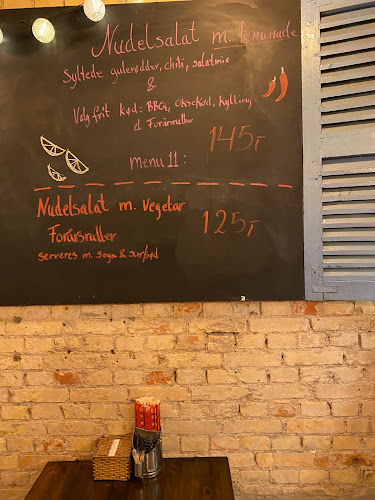 Nudelsalat m. lemonade
Syltede gulerødder, chili, salatmix
&
Valg frit kød: BBQ, Oksekød, Kylling,
el. Forårsruller
145,-
menu 11:
Nudelsalat m. vegetar
125,-
Forårsruller
serveres m. soya & sur/sød